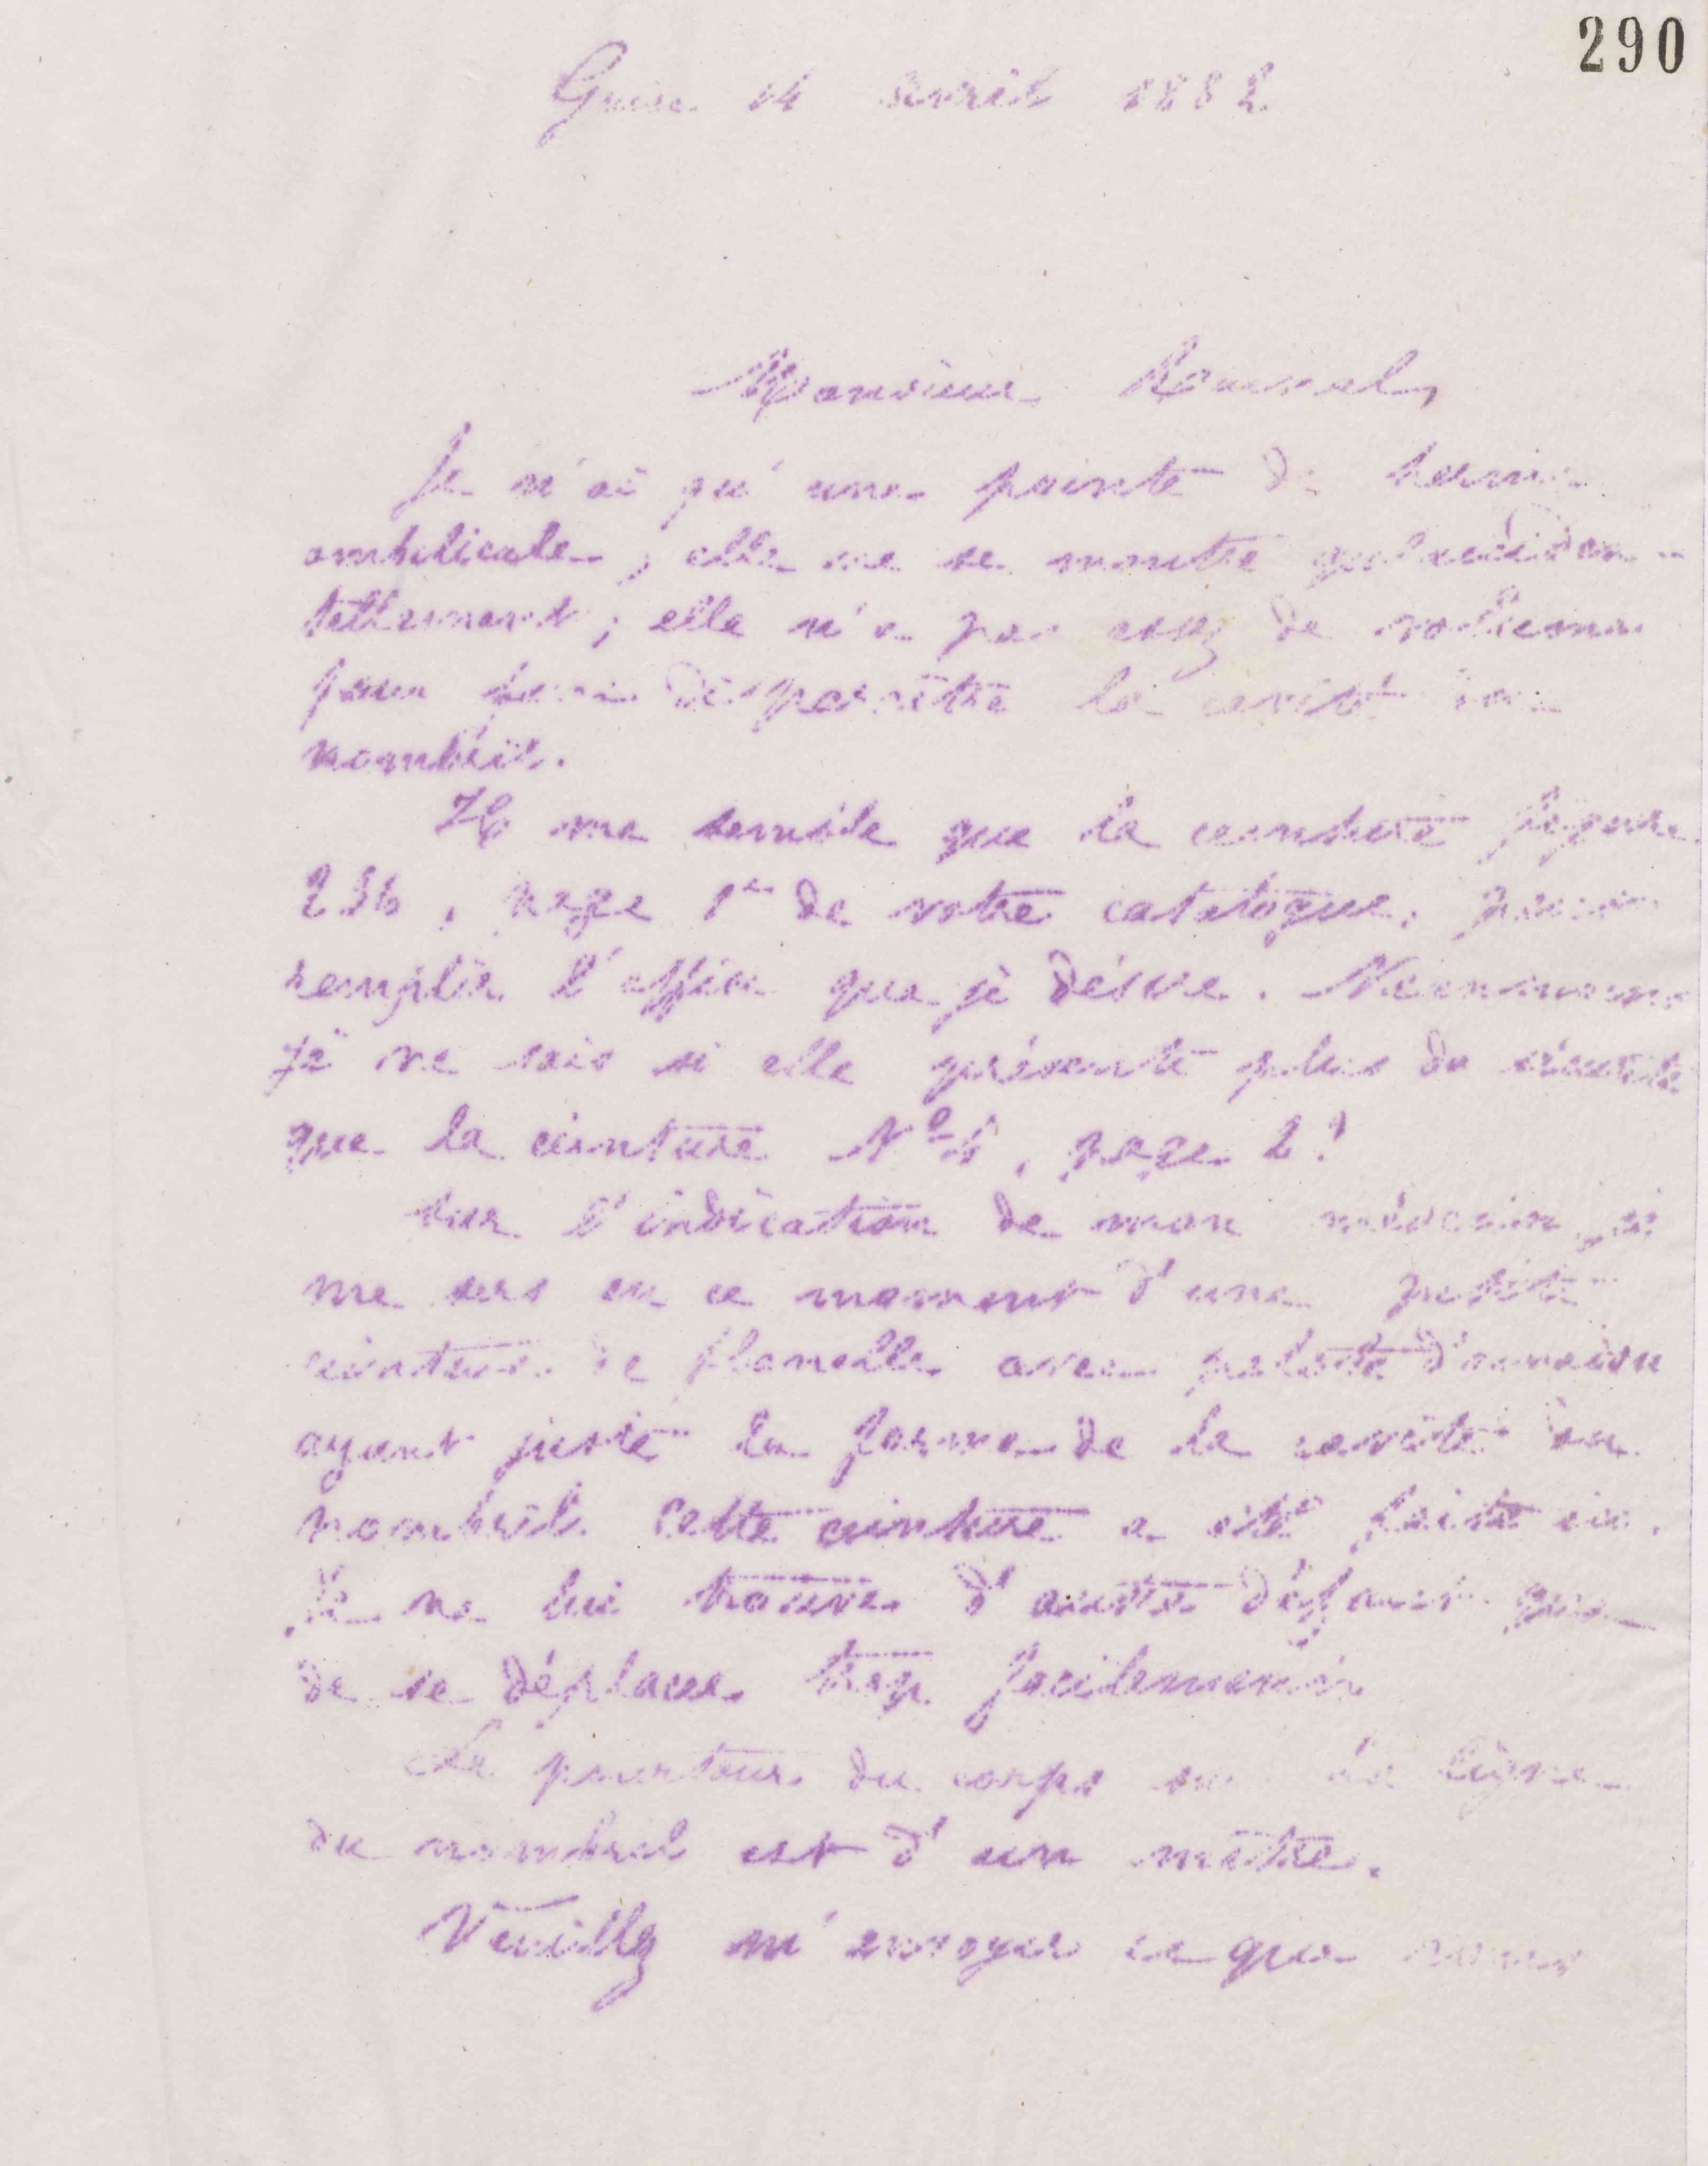 290
Guise 14 avril 1882
Monsieur
Je n'ai qu'une pointe de hernie
ombilicale, elle ne se montre qu'acciden-
tellement; elle n'a pas assez de volume
pour faire disparaître la cavité du
nombril.
Il me semble que la ceinture figure
236, page 1re de votre catalogue,
remplir l'office que je désire. Néanmoins
je ne sais si elle présente plus de sécurité
que la ceinture No 6, page 2?
Sur l'indication de mon médecin, je
me sers en ce moment d'une petite
ceinture de flanelle avec pelote
ayant juste la forme de la cavité du
nombril. Cette ceinture a été faite ici.
Je ne lui trouve d'autre défaut que
de se déplacer trop facilement.
Le pourtour du corps sur la ligne
du nombril est d'un mètre.
Veuillez m'envoyer ce que vous